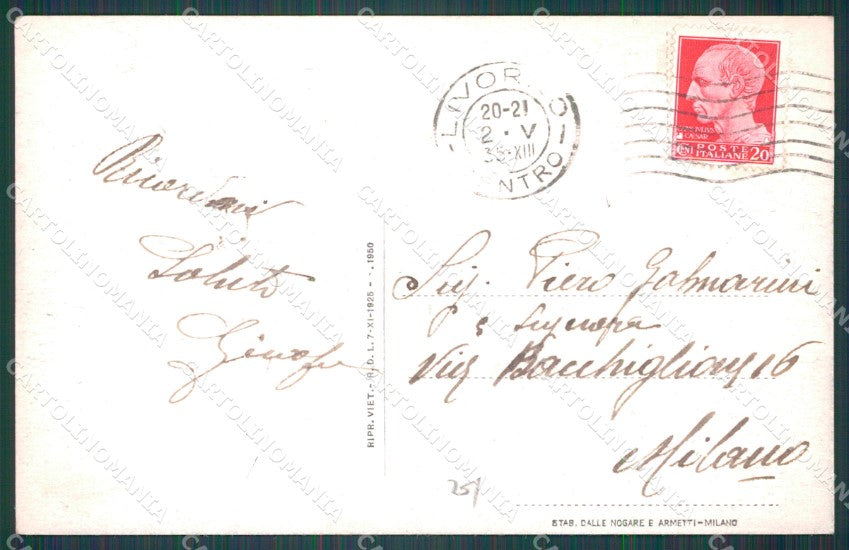 LIVORNO
20-21
2 · V
35-XIII
CENTRO
CAESAR
POSTE
ITALIANE
CENT
20
Saluti
RIPR. VIET. - R. D. L. 7-XI-1925 - N. 1950
Sig. Piero Galmarini
e Signora
Via Bacchiglione 16
Milano
25/
STAB. DALLE NOGARE E ARMETTI-MILANO
CARTOLINOMANIA